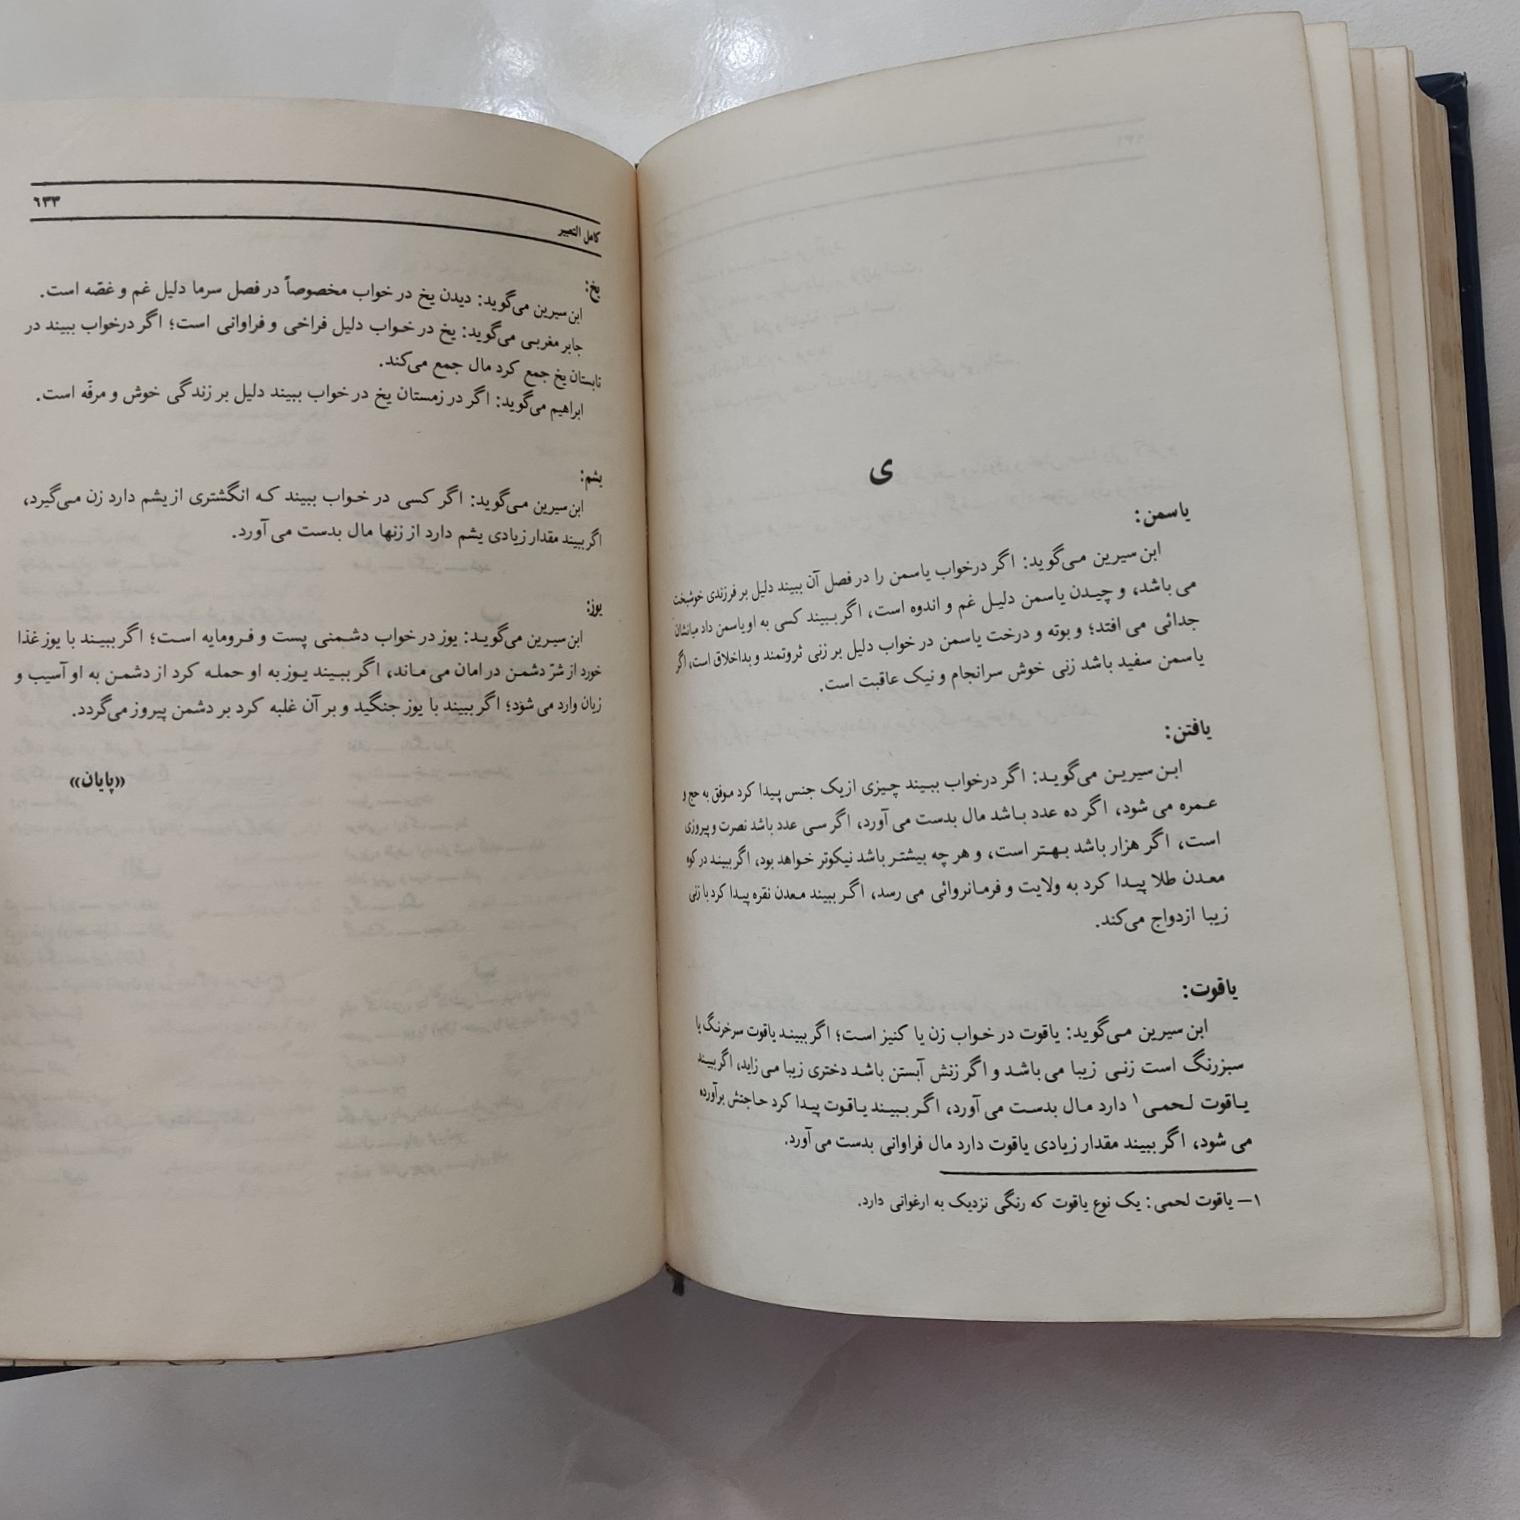 ی
یاسمن:
ابن سیرین می‌گوید: اگر درخواب یاسمن را در فصل آن ببیند دلیل بر فرزندی خوشبخت
می باشد، و چیدن یاسمن دلیل غم و اندوه است، اگر ببیند کسی به او یاسمن داد میانشان
جدائی می افتد؛ و بوته و درخت یاسمن در خواب دلیل بر زنی ثروتمند و بداخلاق است، اگر
یاسمن سفید باشد زنی خوش سرانجام و نیک عاقبت است.
یافتن:
ابن سیرین می‌گوید: اگر درخواب ببیند چیزی از یک جنس پیدا کرد موفق به حج و
عمره می شود، اگر ده عدد باشد مال بدست می آورد، اگر سی عدد باشد نصرت و پیروزی
است، اگر هزار باشد بهتر است، و هر چه بیشتر باشد نیکوتر خواهد بود، اگر ببیند در کوه
معدن طلا پیدا کرد به ولایت و فرمانروائی می رسد، اگر ببیند معدن نقره پیدا کرد با زنی
زیبا ازدواج می‌کند.
یاقوت:
ابن سیرین می‌گوید: یاقوت در خواب زن یا کنیز است؛ اگر ببیند یاقوت سرخرنگ یا
سبزرنگ است زنی زیبا می باشد و اگر زنش آبستن باشد دختری زیبا می زاید، اگر ببیند
یاقوت لحمی۱ دارد مال بدست می آورد، اگر ببیند یاقوت پیدا کرد حاجتش برآورده
می شود، اگر ببیند مقدار زیادی یاقوت دارد مال فراوانی بدست می آورد.
۱– یاقوت لحمی: یک نوع یاقوت که رنگی نزدیک به ارغوانی دارد.
۶۳۳
کامل التعبیر
یخ:
ابن سیرین می‌گوید: دیدن یخ در خواب مخصوصاً در فصل سرما دلیل غم و غصّه است.
جابر مغربی می‌گوید: یخ در خواب دلیل فراخی و فراوانی است؛ اگر درخواب ببیند در
تابستان یخ جمع کرد مال جمع می‌کند.
ابراهیم می‌گوید: اگر در زمستان یخ در خواب ببیند دلیل بر زندگی خوش و مرفّه است.
یشم:
ابن سیرین می‌گوید: اگر کسی در خواب ببیند که انگشتری از یشم دارد زن می‌گیرد،
اگر ببیند مقدار زیادی یشم دارد از زنها مال بدست می آورد.
یوز:
ابن سیرین می‌گوید: یوز در خواب دشمنی پست و فرومایه است؛ اگر ببیند با یوز غذا
خورد از شرّ دشمن در امان می ماند، اگر ببیند یوز به او حمله کرد از دشمن به او آسیب و
زیان وارد می شود؛ اگر ببیند با یوز جنگید و بر آن غلبه کرد بر دشمن پیروز می‌گردد.
«پایان»